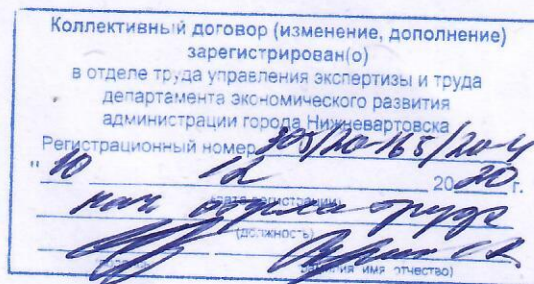 Коллективный договор (изменение, дополнение)
зарегистрирован(о)
в отделе труда управления экспертизы и труда
департамента экономического развития
администрации города Нижневартовска
Регистрационный номер
" 10 12 2020 г.
(дата регистрации)
нач отдела труда
(должность)
подпись фамилия имя отчество)